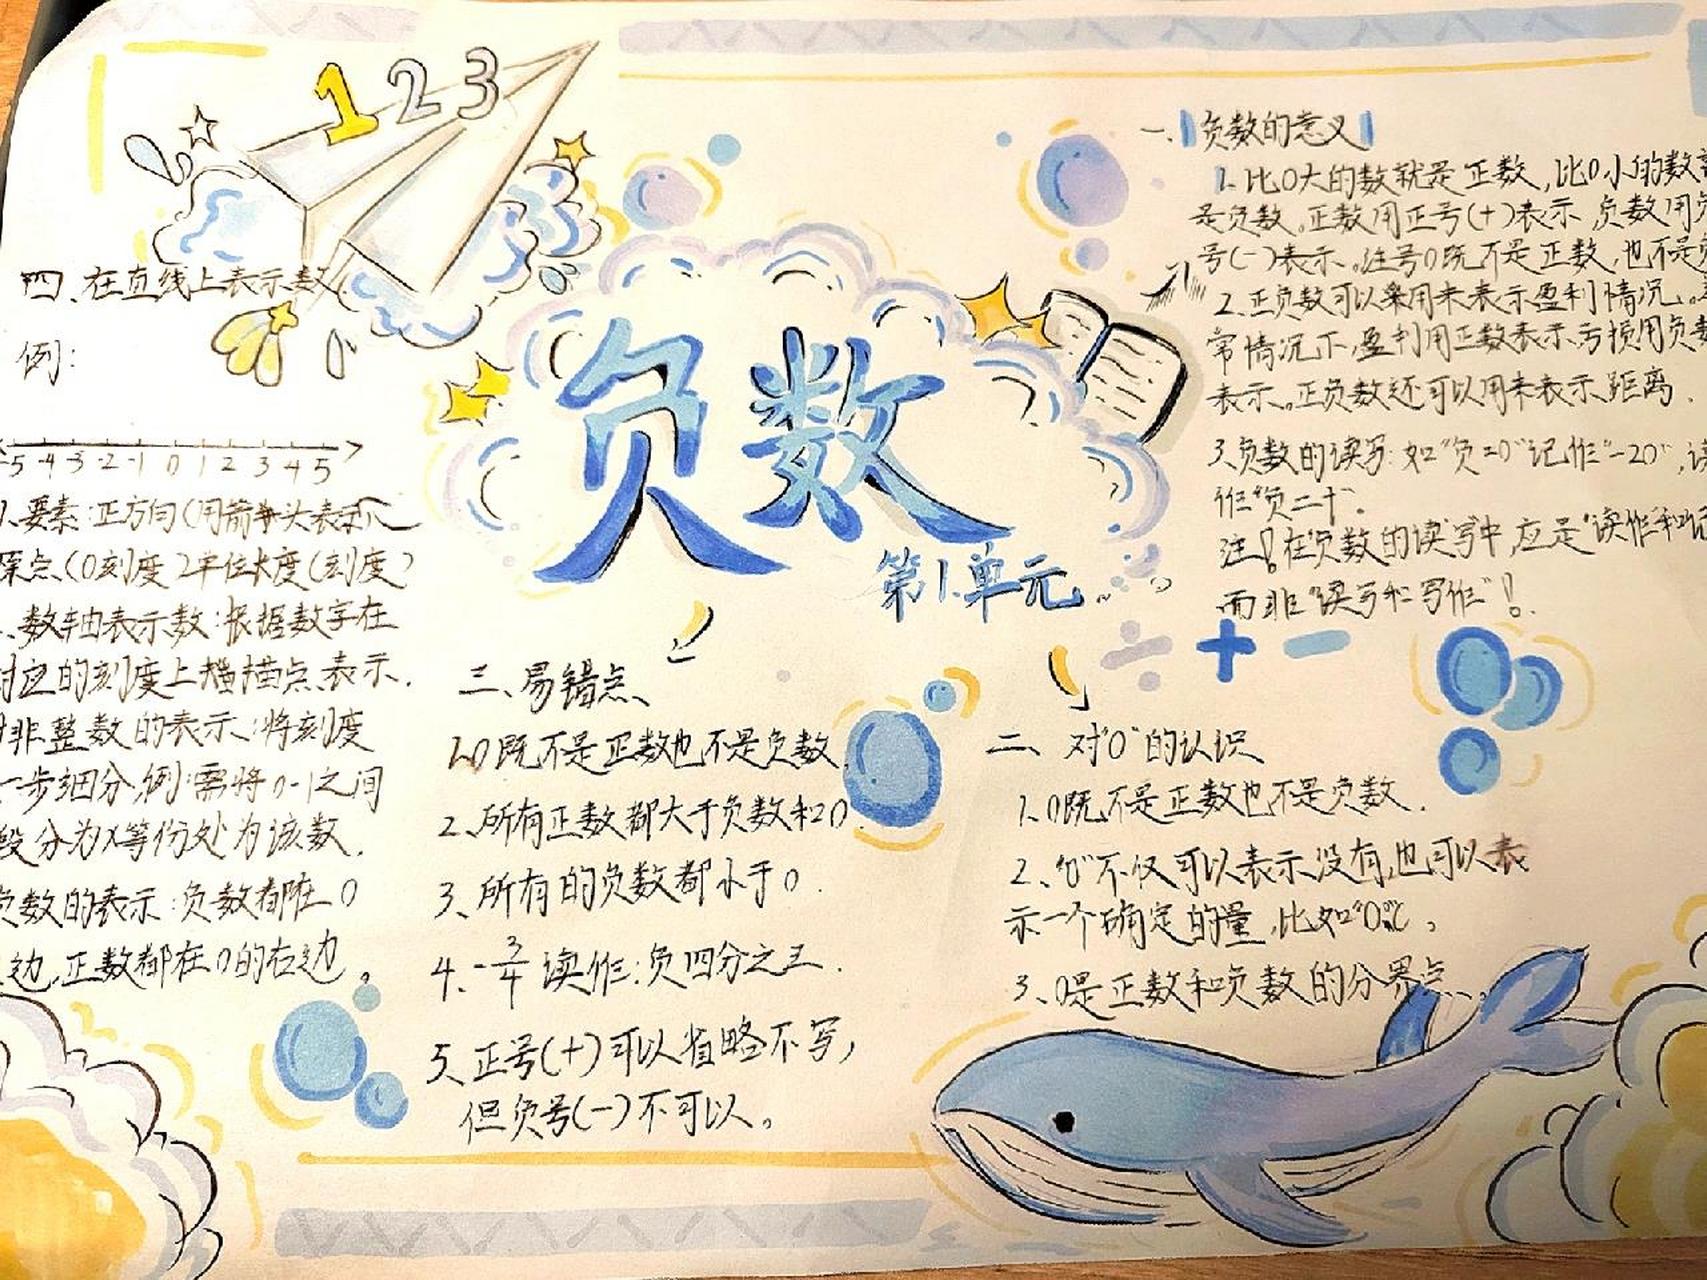 123
负数
第1单元
一、负数的意义
1.比0大的数就是正数,比0小的数
是负数。正数用正号(+)表示,负数用
号(-)表示。注号0既不是正数,也不是
2.正负数可以来表示盈利情况、。
常情况下,盈利用正数表示,亏损用负数
表示。正负数还可以用来表示距离.
3.负数的读写:如"负20"记作"-20",读
作"负二十".
注!在负数的读写中,应是"读作和记
而非"读写和写作"!
÷ + -
二、对"0"的认识
1.0既不是正数也不是负数.
2、"0"不仅可以表示没有,也可以表
示一个确定的量,比如"0℃。
3、0是正数和负数的分界点、
三、易错点、
1.0既不是正数也不是负数.
2、所有正数都大于负数和0.
3、所有的负数都小于0.
4、-3/4 读作:负四分之三.
5、正号(+)可以省略不写,
但负号(-)不可以。
四、在直线上表示数
例:
-5 -4 -3 -2 -1 0 1 2 3 4 5
1.要素:正方向(用箭头表示)
原点(0刻度)单位长度(刻度)
、数轴表示数:根据数字在
对应的刻度上描点表示.
非整数的表示:将刻度
一步细分,例:需将0-1之间
段分为X等份处为该数.
负数的表示:负数都在0
边,正数都在0的右边。